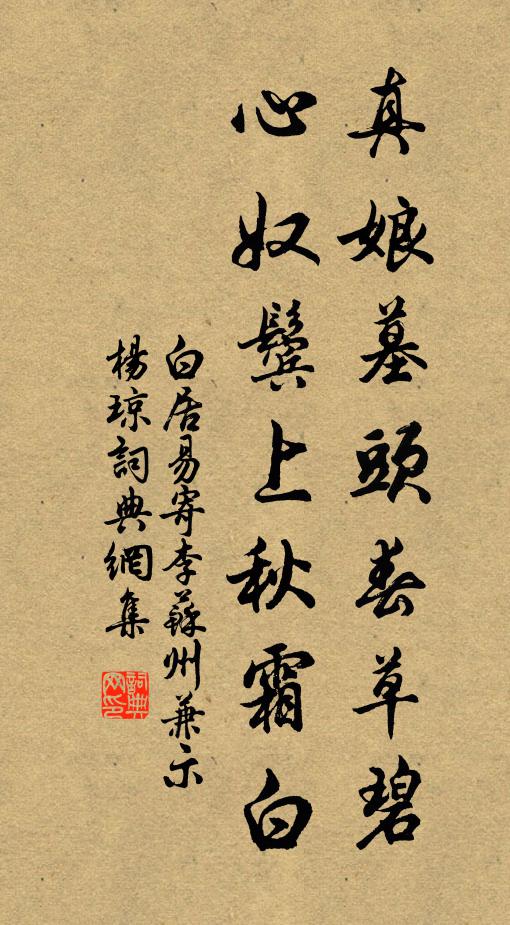 真娘墓頭春草碧
心奴鬢上秋霜白
白居易寄李蘇州兼示
楊瓊詞典網集
詞典
网印